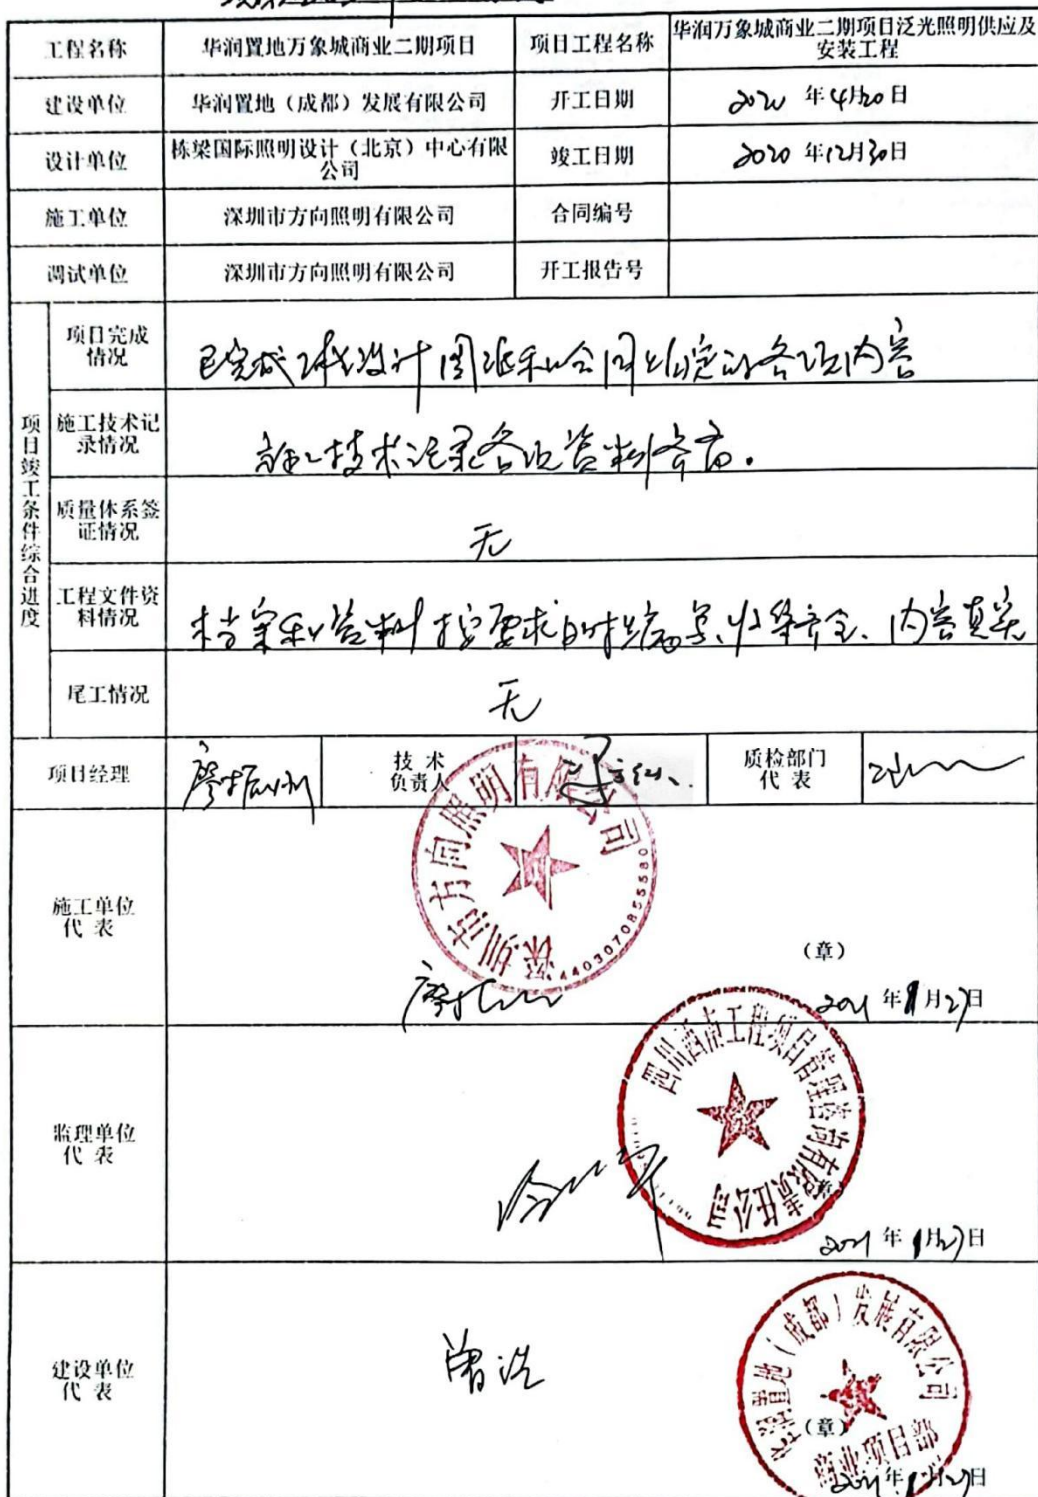 工程名称 华润置地万象城商业二期项目 项目工程名称 华润万象城商业二期项目泛光照明供应及
安装工程
建设单位 华润置地（成都）发展有限公司 开工日期 2020 年4月20日
设计单位 栋梁国际照明设计（北京）中心有限
公司 竣工日期 2020 年12月30日
施工单位 深圳市方向照明有限公司 合同编号
调试单位 深圳市方向照明有限公司 开工报告号
项目竣工条件综合进度
项目完成
情况 已完成工程设计图纸和合同约定的各项内容
施工技术记
录情况 施工技术记录各项资料齐备.
质量体系签
证情况 无
工程文件资
料情况 档案和资料按要求 编写、收集齐全、内容真实
尾工情况 无
项目经理 廖 技 术
负责人 质检部门
代 表
深圳市方向照明有限公司
4403070855580
施工单位
代 表
（章）
廖
2021 年1月27日
四川西南工程项目管理咨询有限责任公司
监理单位
代 表
2021 年1月27日
华润置地（成都）发展有限公司
建设单位
代 表
曾浩
（章）
项目部
2021年1月27日